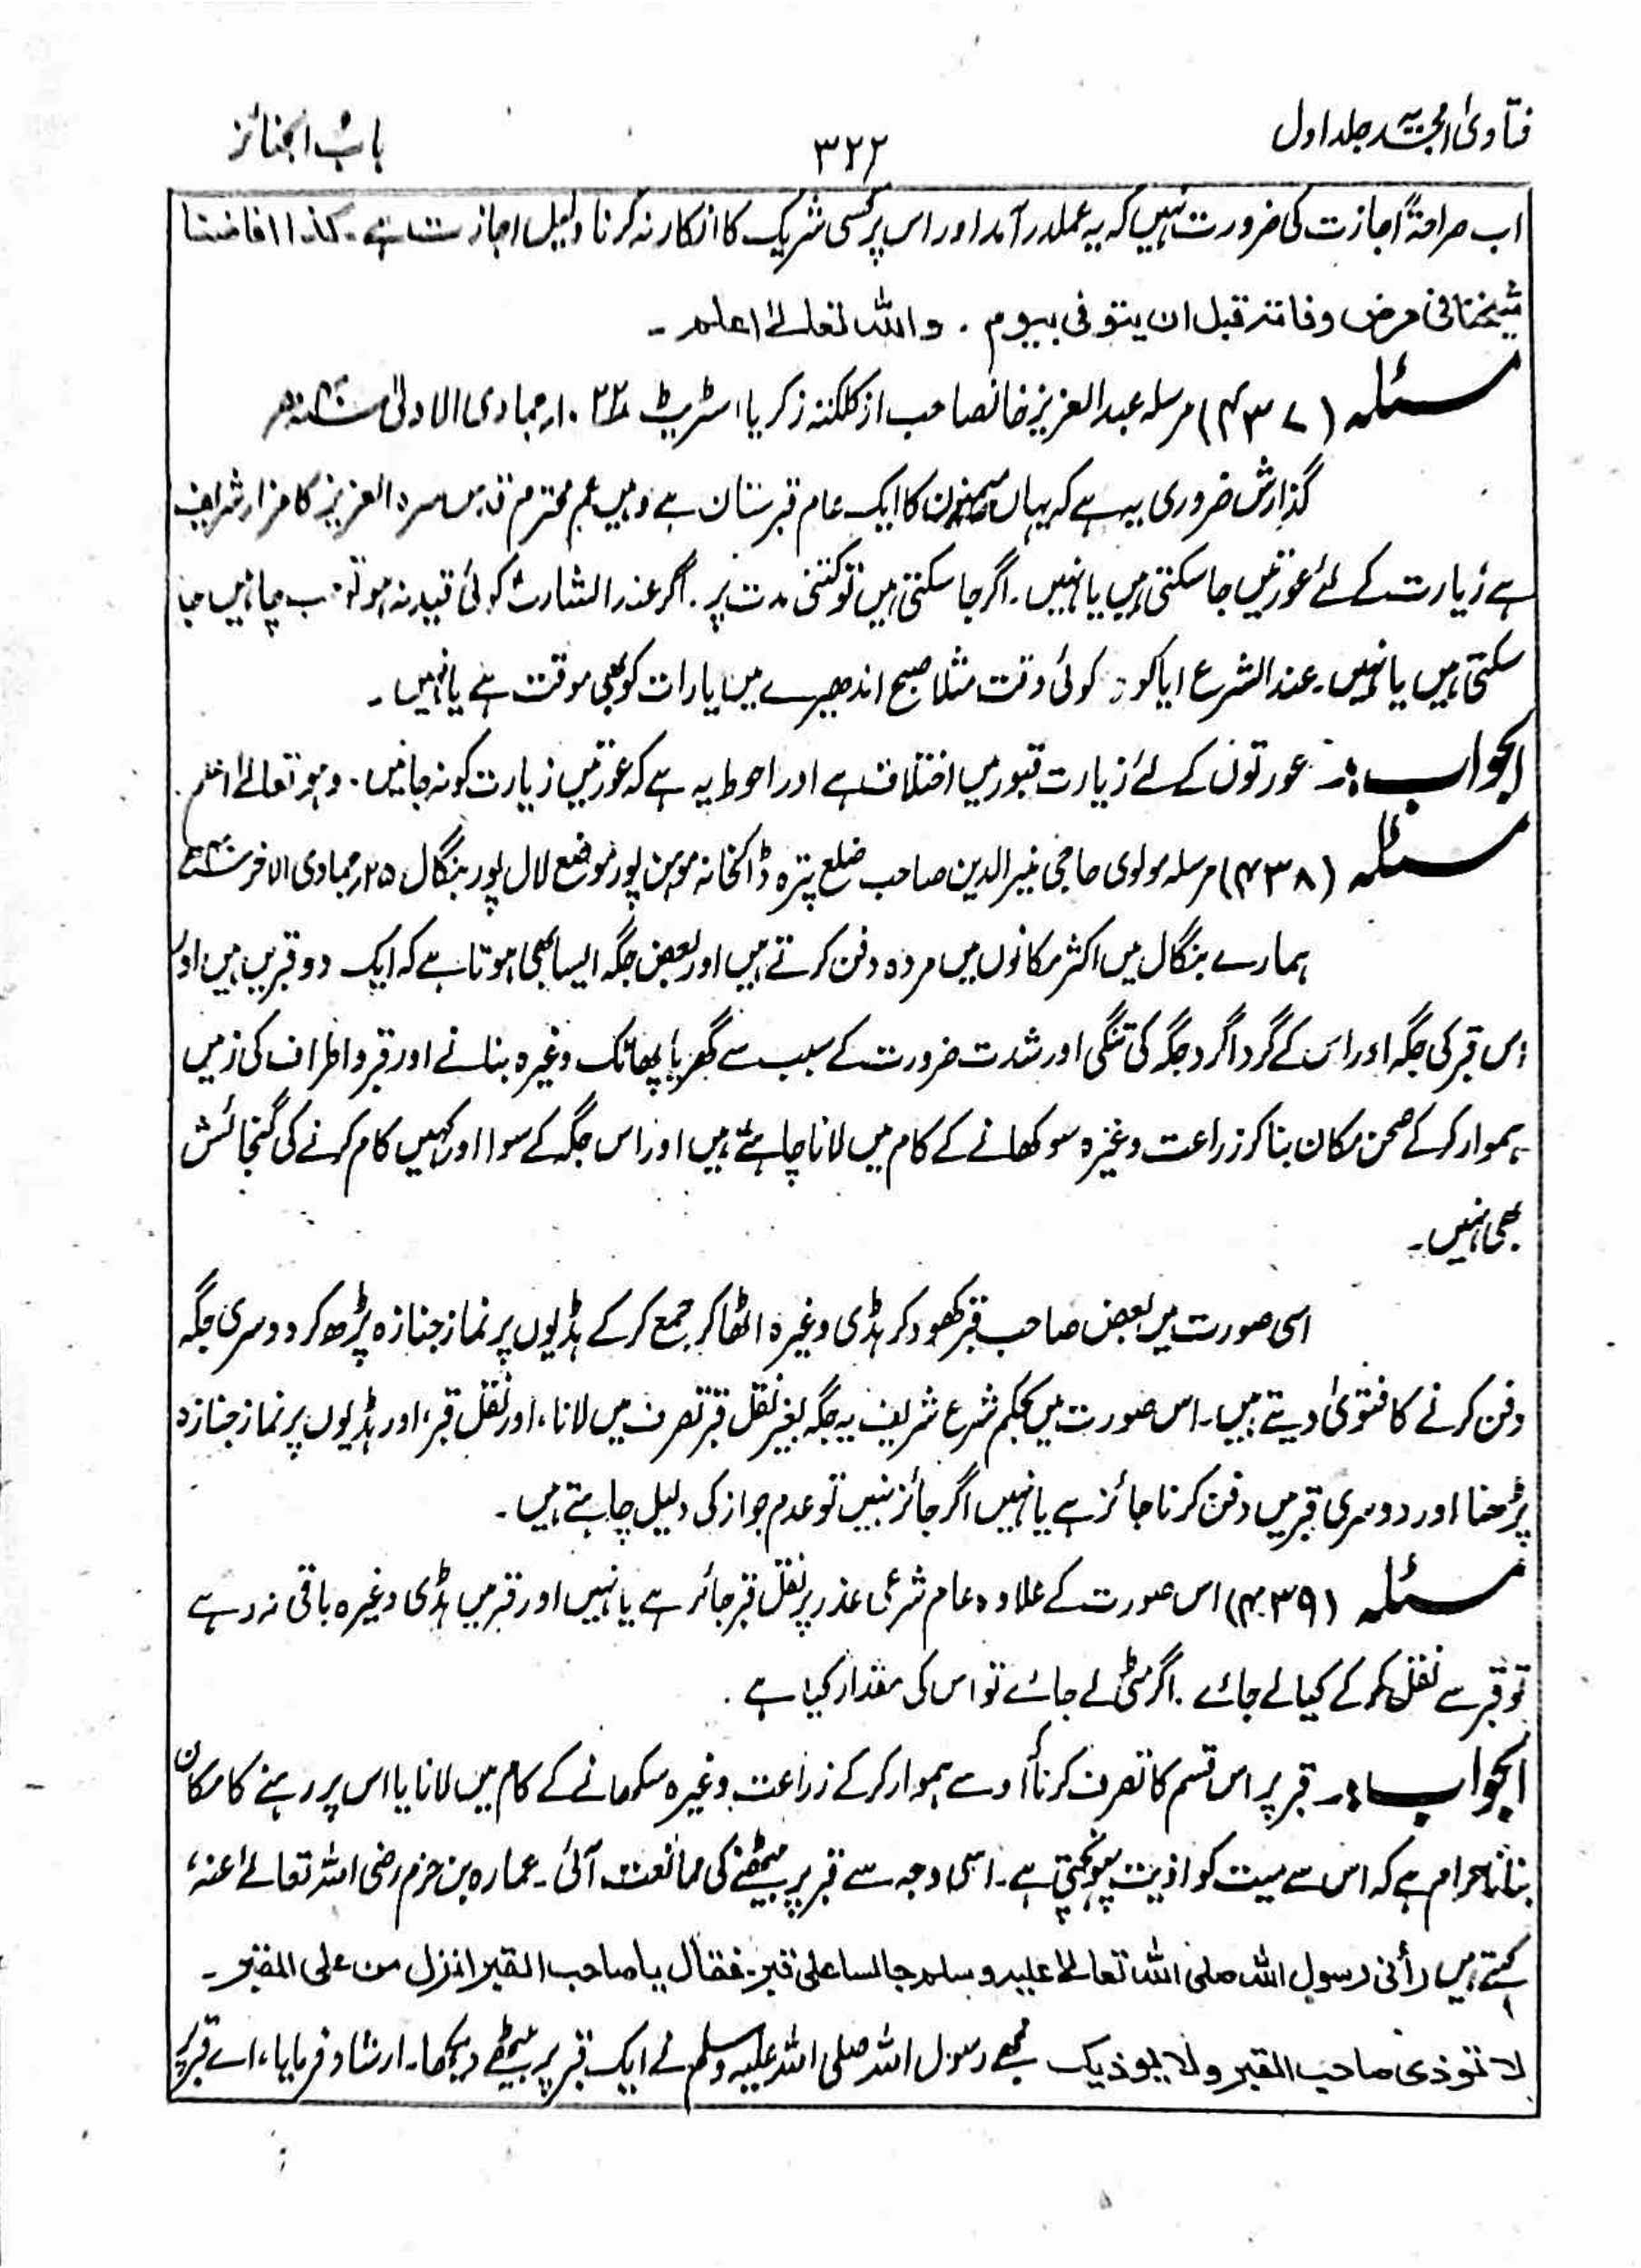 فتاویٰ امجدیہ جلد اول
۳۲۲
باب الجنائز
اب صراحۃً اجازت کی ضرورت نہیں کہ یہ عملدرآمد اور اس پر کسی شریک کا انکار نہ کرنا دلیل اجازت ہے ۔ کذا افاضنا
شیخنا فی مرض وفاتہ قبل ان یتوفی بیوم ۔ واللہ تعالےٰ اعلم ۔
مسئلہ (۴۳۷) مرسلہ عبدالعزیز خانصاحب از کلکتہ زکریا اسٹریٹ ۲۲ ۱۰؍ جمادی الاولیٰ
گذارش ضروری یہ ہے کہ یہاں میمنون کا ایک عام قبرستان ہے وہیں عم محترم قدس سرہ العزیز کا مزار شریف
ہے زیارت کے لئے عورتیں جا سکتی ہیں یا نہیں ۔ اگر جا سکتی ہیں تو کتنی مدت پر ۔ اگر عند الشارع کوئی قید نہ ہو تو جب چاہیں جا
سکتی ہیں یا نہیں ۔ عند الشرع ایاکو کوئی وقت مثلا صبح اندھیرے میں یا رات کو بھی موقت ہے یا نہیں ۔
الجواب :۔ عورتوں کے لئے زیارت قبور میں اختلاف ہے اور احوط یہ ہے کہ عورتیں زیارت کو نہ جائیں ۔ وہو تعالےٰ اعلم ۔
مسئلہ (۴۳۸) مرسلہ مولوی حاجی منیر الدین صاحب ضلع پترہ ڈاکخانہ مومن پور موضع لال پور بنگال ۲۵؍ جمادی الاخر
ہمارے بنگال میں اکثر مکانوں میں مردہ دفن کرتے ہیں اور بعض جگہ ایسا بھی ہوتا ہے کہ ایک دو قبریں ہیں اور
اس قبر کی جگہ اور اس کے گرد اگرد جگہ کی تنگی اور شدت ضرورت کے سبب سے گھر یا پھاٹک وغیرہ بنانے اور قبر و اطراف کی زمیں
ہموار کر کے صحن مکان بنا کر زراعت وغیرہ سوکھانے کے کام میں لانا چاہتے ہیں اور اس جگہ کے سوا اور کہیں کام کرنے کی گنجائش
بھی نہیں ۔
اسی صورت میں بعض صاحب قبر کھود کر ہڈی وغیرہ اٹھا کر جمع کر کے ہڈیوں پر نماز جنازہ پڑھ کر دوسری جگہ
دفن کرنے کا فتویٰ دیتے ہیں ۔ اس صورت میں بحکم شرع شریف یہ جگہ بغیر نقل قبر تصرف میں لانا ، اور نقل قبر ، اور ہڈیوں پر نماز جنازہ
پڑھنا اور دوسری قبر میں دفن کرنا جائز ہے یا نہیں اگر جائز نہیں تو عدم جواز کی دلیل چاہتے ہیں ۔
مسئلہ (۴۳۹) اس صورت کے علاوہ عام شرعی عذر پر نقل قبر جائز ہے یا نہیں اور قبر میں ہڈی وغیرہ باقی نہ رہے
تو قبر سے نقل کر کے کیا لے جائے ۔ اگر مٹی لے جائے تو اس کی مقدار کیا ہے ۔
الجواب :۔ قبر پر اس قسم کا تصرف کرنا اوسے ہموار کر کے زراعت وغیرہ سکھانے کے کام میں لانا یا اس پر رہنے کا مکان
بنانا حرام ہے کہ اس سے میت کو اذیت پہونچتی ہے ۔ اسی وجہ سے قبر پر بیٹھنے کی ممانعت آئی ۔ عمارہ بن حزم رضی اللہ تعالےٰ عنہ ،
کہتے ہیں رأنی رسول اللہ صلی اللہ تعالےٰ علیہ وسلم جالسا علی قبر ۔ فقال یا صاحب القبر انزل من علی القبر ۔
لا تؤذی صاحب القبر ولا یؤذیک مجھے رسول اللہ صلی اللہ علیہ وسلم نے ایک قبر پر بیٹھے دیکھا ۔ ارشاد فرمایا ، اے قبر کے